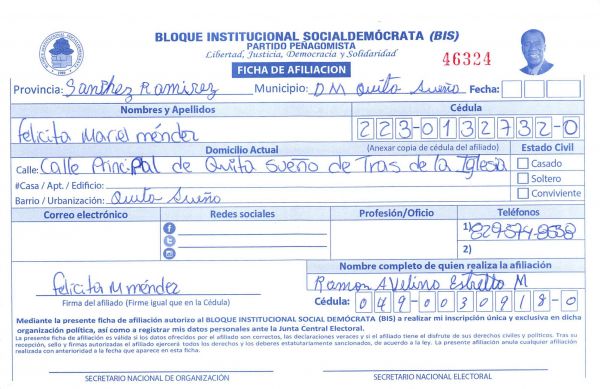 BLOQUE INSTITUCIONAL SOCIALDEMÓCRATA (BIS)
PARTIDO PEÑAGOMISTA
Libertad, Justicia, Democracia y Solidaridad
46324
FICHA DE AFILIACION
Provincia: Sanchez Ramirez Municipio: D M Quita Sueño Fecha:
Nombres y Apellidos Cédula
felicita Mariel méndez 223-0132732-0
Domicilio Actual (Anexar copia de cédula del afiliado) Estado Civil
Calle: Calle Principal de Quita sueño de Tras de la Iglesia Casado
#Casa / Apt. / Edificio: Soltero
Barrio / Urbanización: Quita Sueño Conviviente
Correo electrónico Redes sociales Profesión/Oficio Teléfonos
1) 829-574-8558
2)
felicita M méndez
Firma del afiliado (Firme igual que en la Cédula)
Nombre completo de quien realiza la afiliación
Ramon Avelino M
Cédula: 049-0030918-0
Mediante la presente ficha de afiliación autorizo al BLOQUE INSTITUCIONAL SOCIAL DEMÓCRATA (BIS) a realizar mi inscripción única y exclusiva en dicha
organización política, así como a registrar mis datos personales ante la Junta Central Electoral.
La presente ficha de afiliación es válida si los datos ofrecidos por el afiliado son correctos, las declaraciones veraces y si el afiliado tiene el disfrute de sus derechos civiles y políticos. Tras su
recepción, sello y firmas autorizadas el afiliado ejercerá todos los derechos y los deberes estatutariamente sancionados, de acuerdo a la ley. La presente afiliación anula cualquier afiliación
realizada con anterioridad a la fecha que aparece en esta ficha.
SECRETARIO NACIONAL DE ORGANIZACIÓN SECRETARIO NACIONAL ELECTORAL